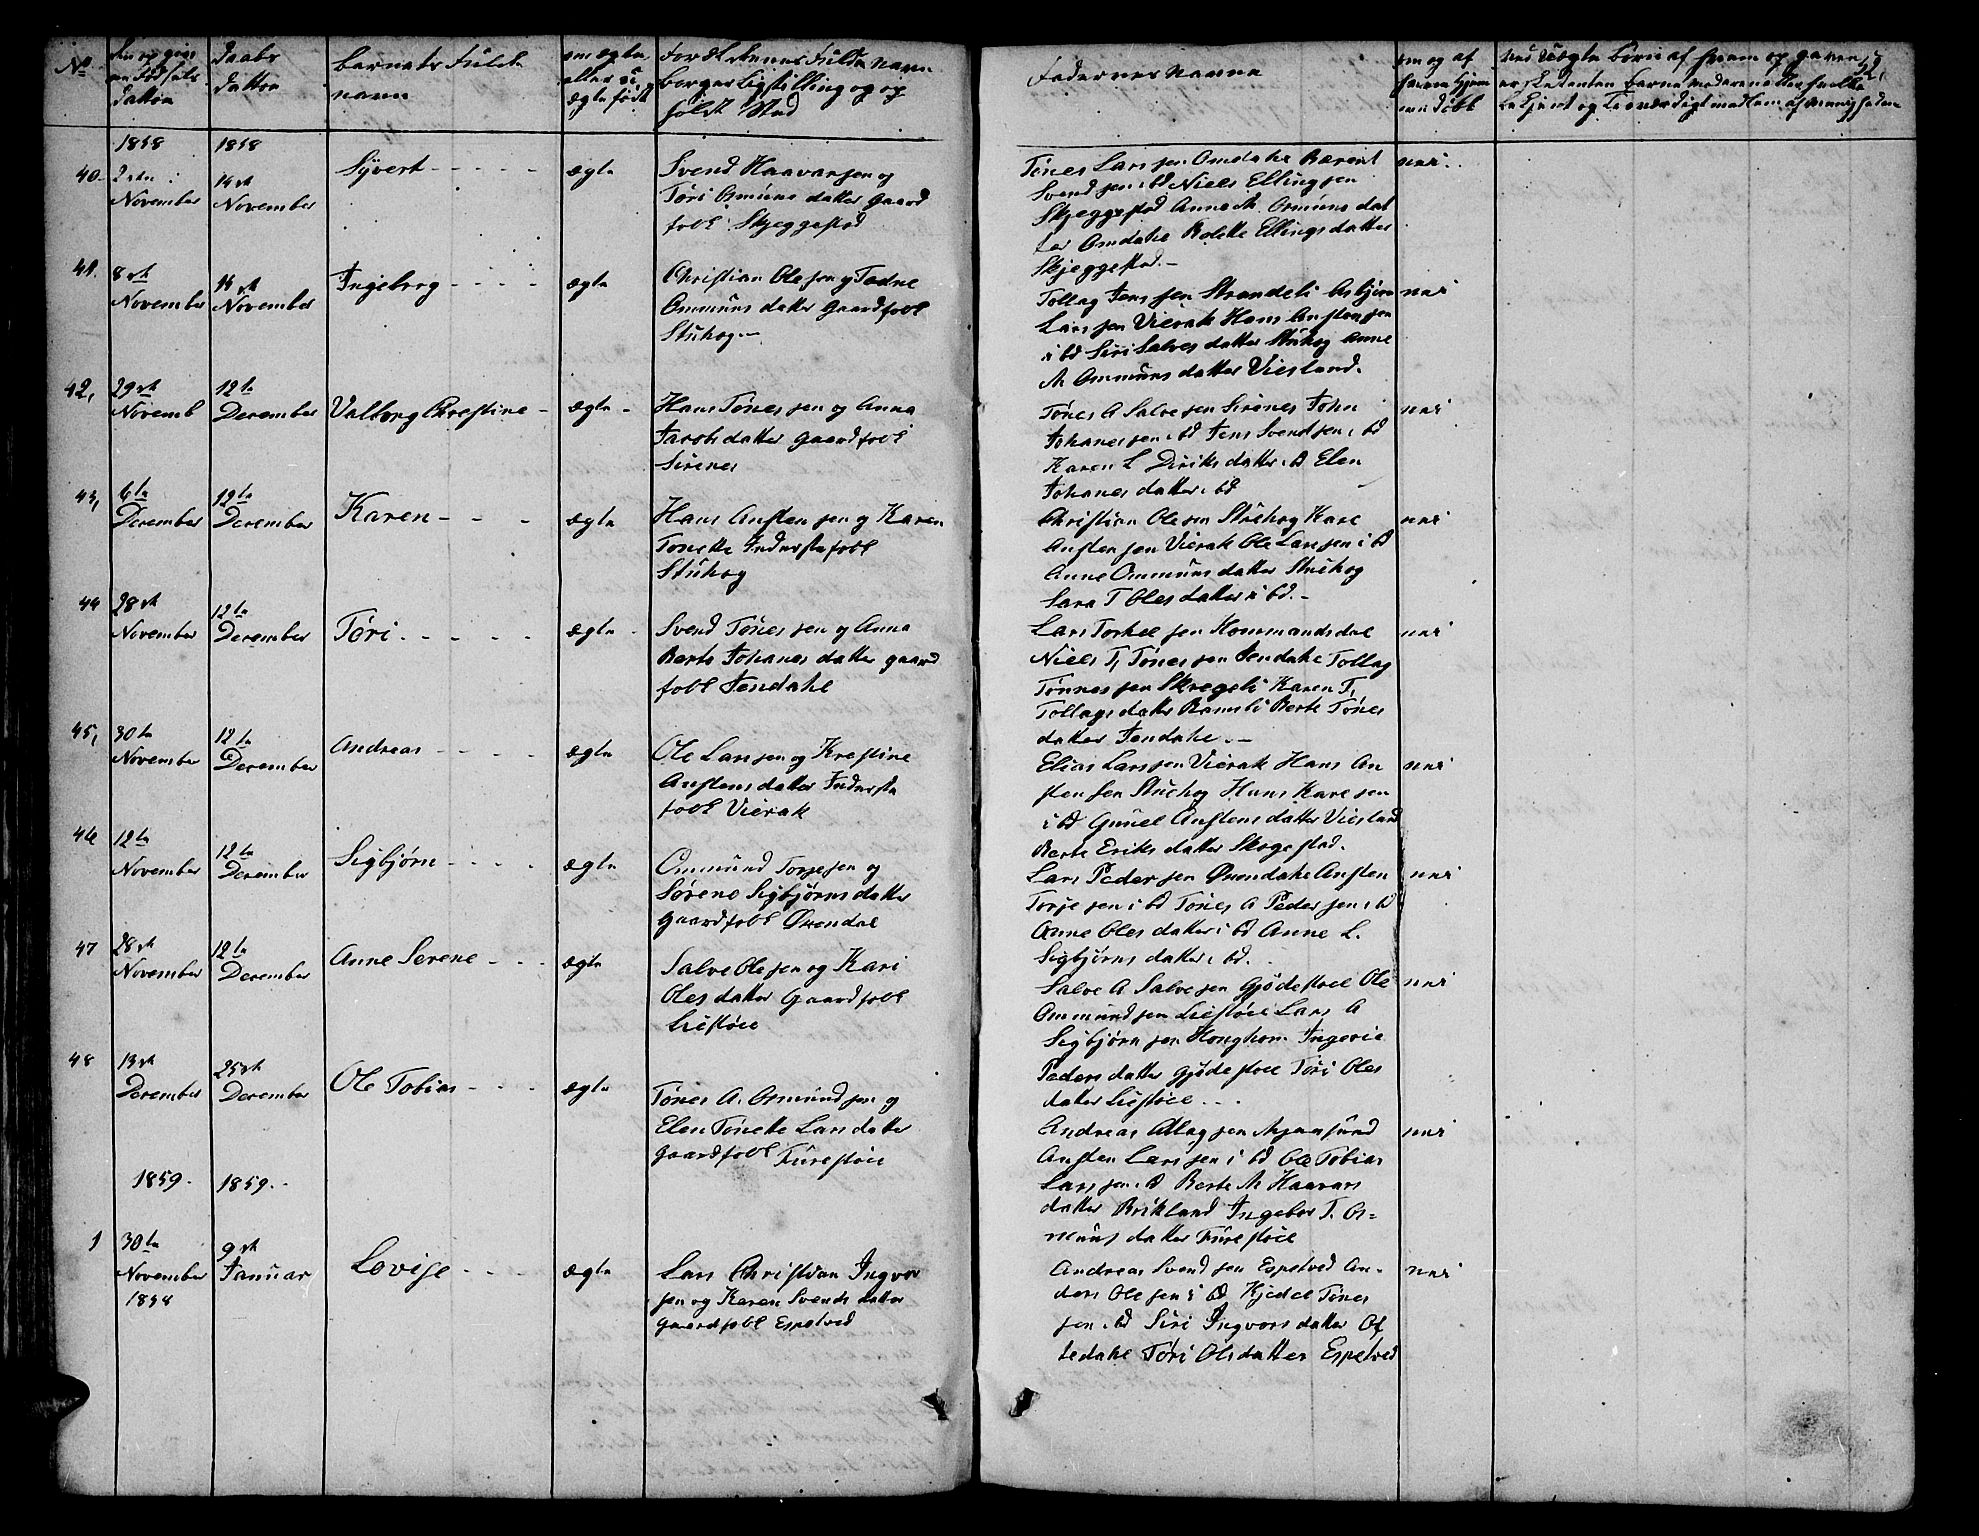 No
Daabs
datton
Barnets Fulde
navn
Fadernes Navne
1858
1858
40
2den
November
14de
November
Syvert
ægte
Svend Haavarsen og
Tøri Osmuns datter Gaard
folk Skjeggestad
Tønes Larssen Omdahl Bærent
Svendsen ibd Niels Ellingsen
Skjeggestad Anne M. Osmuns dat
ter Omdahl Bolette Ellings datter
Skjeggestad.
nei
41.
8de
November
14de
November
Ingeborg
ægte
Christian Olesen og Tadne
Ommuns datter Gaardfolk
Stuhog
Tollag Jenssen Strandeli Asbjørn
Larssen Vierak Hans Anstensen
ibd Siri Salves datter Stuhog Anne
M Ommuns datter Viesland.
nei
42,
29de
Novemb
12te
December
Valborg Chrestine
ægte
Hans Tønessen og Anna
Jacobs datter Gaardfolk
Sirenes
Tønes A Salvesen Sirenes John
Johanessen ibd Jens Svendsen ibd
Karen L Diriks datter ibd Elen
Johanes datter ibd
nei
43,
6te
December
12te
December
Karen
ægte
Hans Anstensen og Karen
Tonette Inderstefolk
Stuhog
Christian Olesen Stuhog Kare
Anstensen Vierak Ole Larssen ibd
Anne Ommuns datter Stuhog
Sara T Oles datter ibd.
nei
44
28de
November
12te
December
Tøri
ægte
Svend Tønessen og Anna
Berte Johanes datter gaard
folk Jendahl
Lars Torkelsen Hommandsdal
Niels T, Tønessen Jendahl Tollag
Tønnessen Skregeli Karen T,
Tollags datter Ramsli Berte Tønes
datter Jendahl.
nei
45,
30te
November
12te
December
Andreas
ægte
Ole Larssen og Krestine
Anstens datter Inderste
folk Vierak
Elias Larssen Vierak Hans An
stensen Stuhog Hans Karesen
ibd Gunel Anstens datter Viesland
Berte Eriks datter Skogestad.
nei
46
12te
November
12te
December
Sigbjørn
ægte
Ommund Torjesen og
Sørene Sigbjørns datter
Gaardfolk Øxendal
Lars Pedersen Øxendahl Ansten
Torjesen ibd Tønes A Pedersen ibd
Anne Oles datter ibd Anne L.
Sigbjørns datter ibd.
nei
47
28de
November
12te
December
Anne Serene
ægte
Salve Olesen og Kari
Oles datter Gaardfolk
Liestøel
Salve A Salvesen Gjødestoel Ole
Ommundsen Liestøel Lars A
Sigbjørnsen Honghom Ingerie
Peders datter gjødestoel Tøri Oles
datter Liestøel
nei
48
13de
December
25de
December
Ole Tobias
ægte
Tønes A. Osmundsen og
Elen Tonette Lars datter
Gaardfolk Furestøel
Andreas Atlagsen Mjaasund
Ansten Larssen ibd Ole Tobias
Larssen ibd Berte M Haavars
datter Birkland Ingebor T. Os=
muns datter Furestøel
nei
1859.
1859.
1
30te
November
1858
9de
Januar
Lovise
ægte
Lars Christian Ingvor
sen og Karen Svends datter
Gaardfolk Espetved
Andreas Svendsen Espetved An-
ders Olesen ibd Kjedel Tønes
sen ibd Siri Ingvors datter Of
tedahl Tøri Olsdatter Espetved
nei